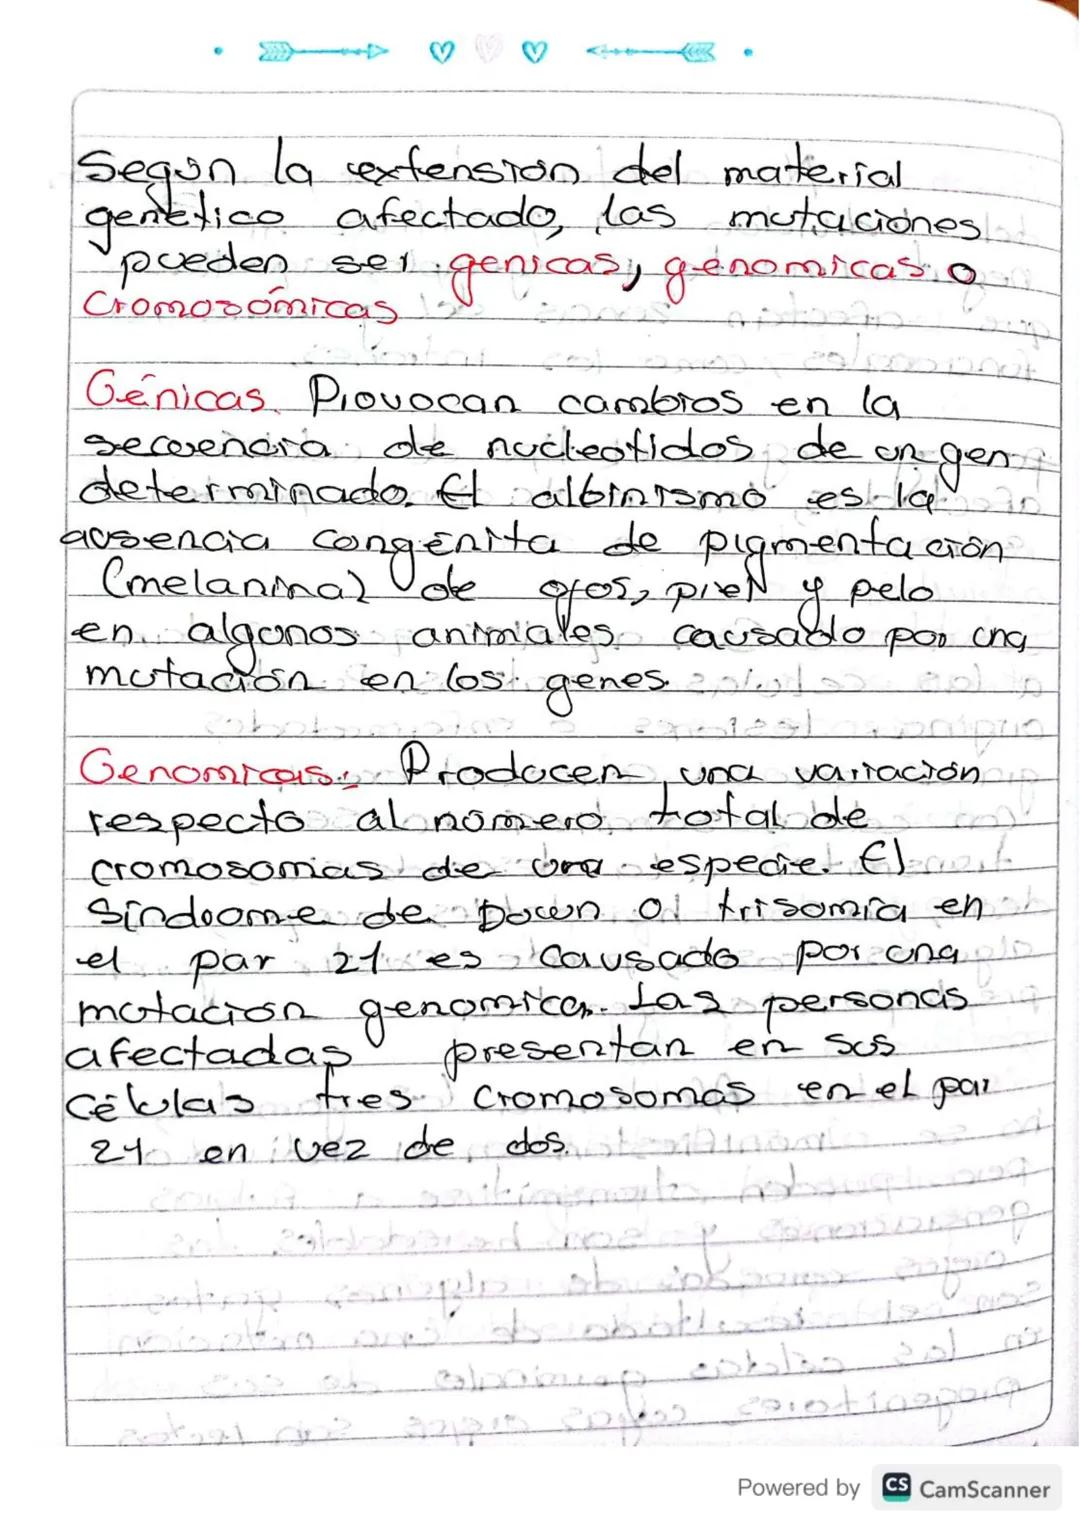 Según la extensión del material
genético afectado, las mutaciones
pueden ser genicas, genomicas o
Cromosómicas
Génicas. Provocan cambios en la
secuencia de nucleotidos de un gen
determinado. El albinismo es la
ausencia congénita de pigmentación
(melanina) de ojos, piel y pelo
en algunos animales causado por una
mutación en los genes.
Genomicas: Producen una variación
respecto al número total de
cromosomas de una especie. El
Síndrome de Down o trisomía en
el par 21 es causado por una
mutación genomica. Las personas
afectadas presentan en sus
células tres cromosomas en el par
21 en vez de dos.
Powered by CS CamScanner